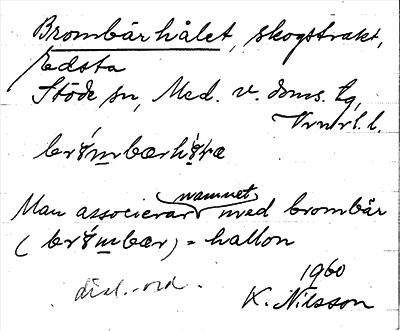 Brombärhålet, skogstrakt,
Edsta
Stöde sn, Med. v. doms. tg,
Vrnrl. l.
Man associerar namnet med brombär
( ) = hallon
dial. ord.
1960
K. Nilsson